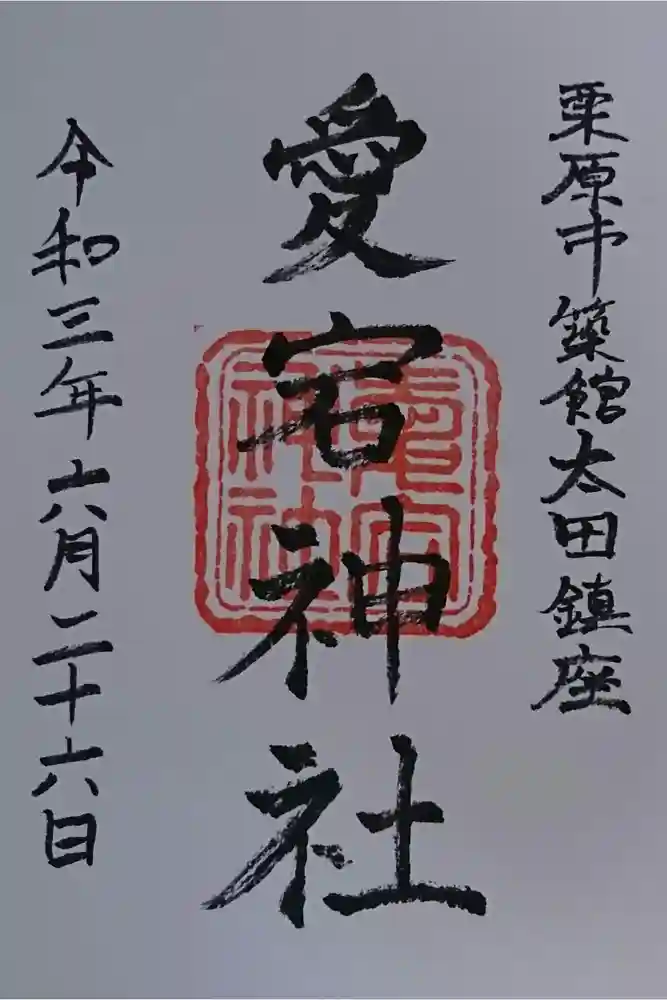 栗原市築館太田鎮座
愛宕神社
愛宕
神社
令和三年六月二十六日